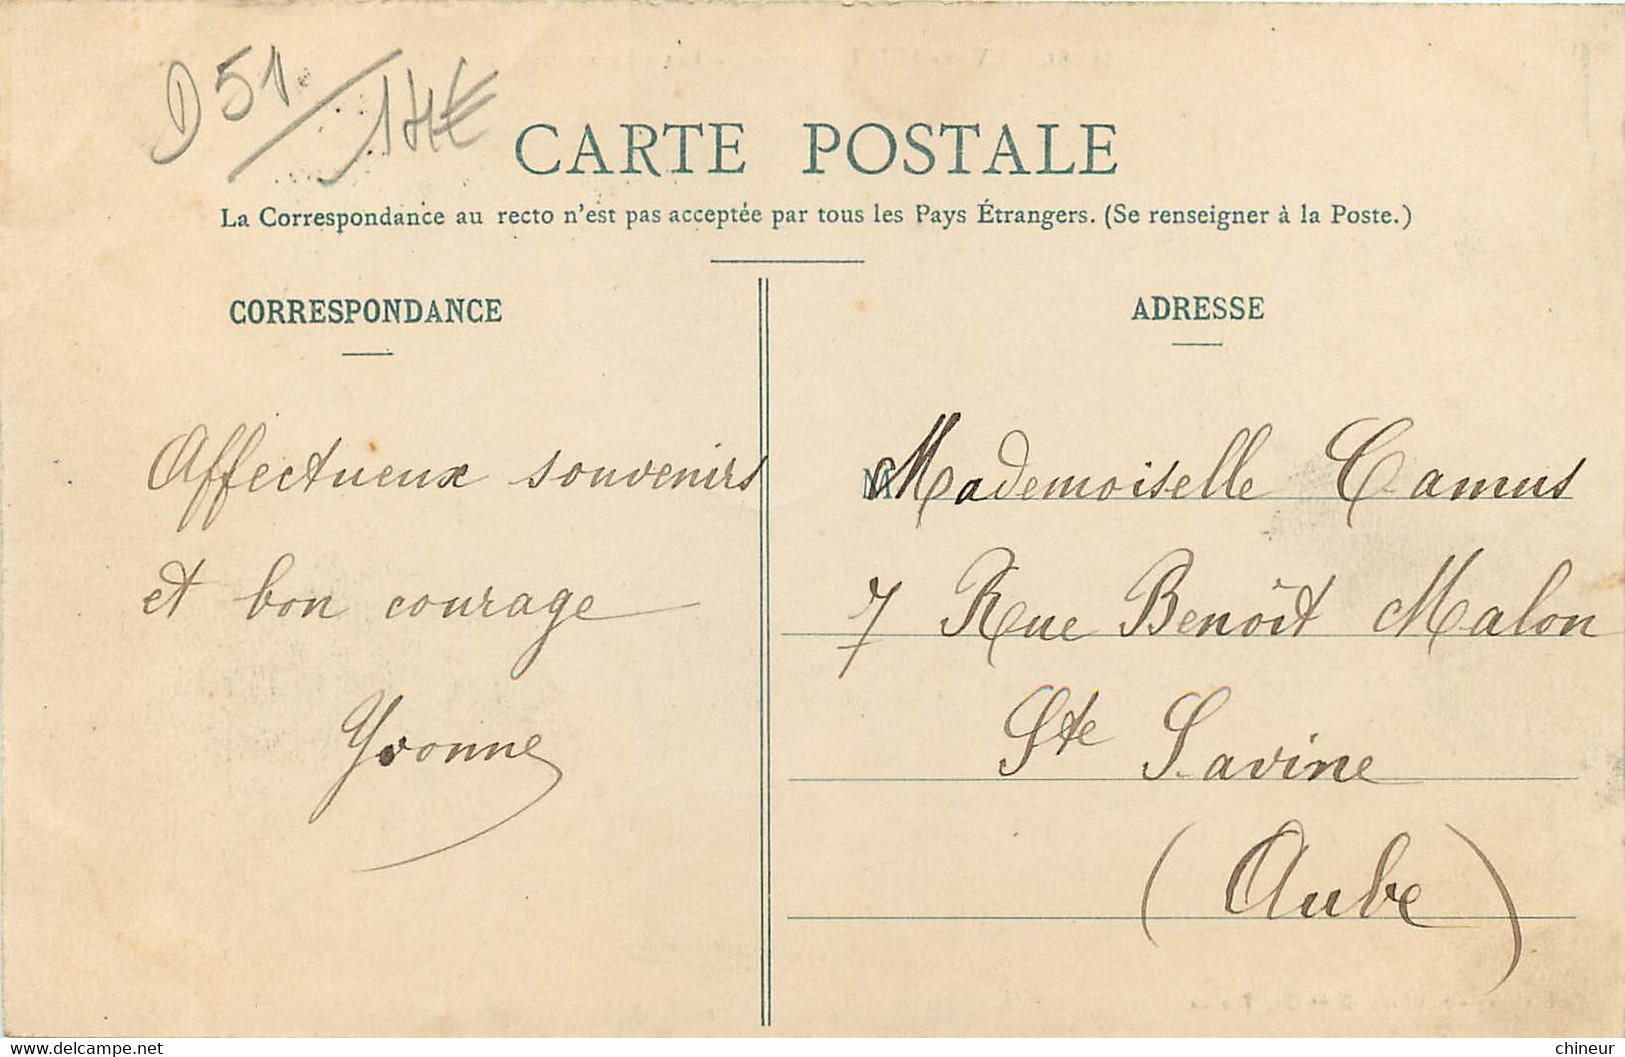 D 51
14€
CARTE POSTALE
La Correspondance au recto n'est pas acceptée par tous les Pays Étrangers. (Se renseigner à la Poste.)
CORRESPONDANCE
Affectueux souvenirs
et bon courage
Yvonne
ADRESSE
M Mademoiselle Camus
7 Rue Benoît Malon
Ste Savine
(Aube)
www.delcampe.net
chineur